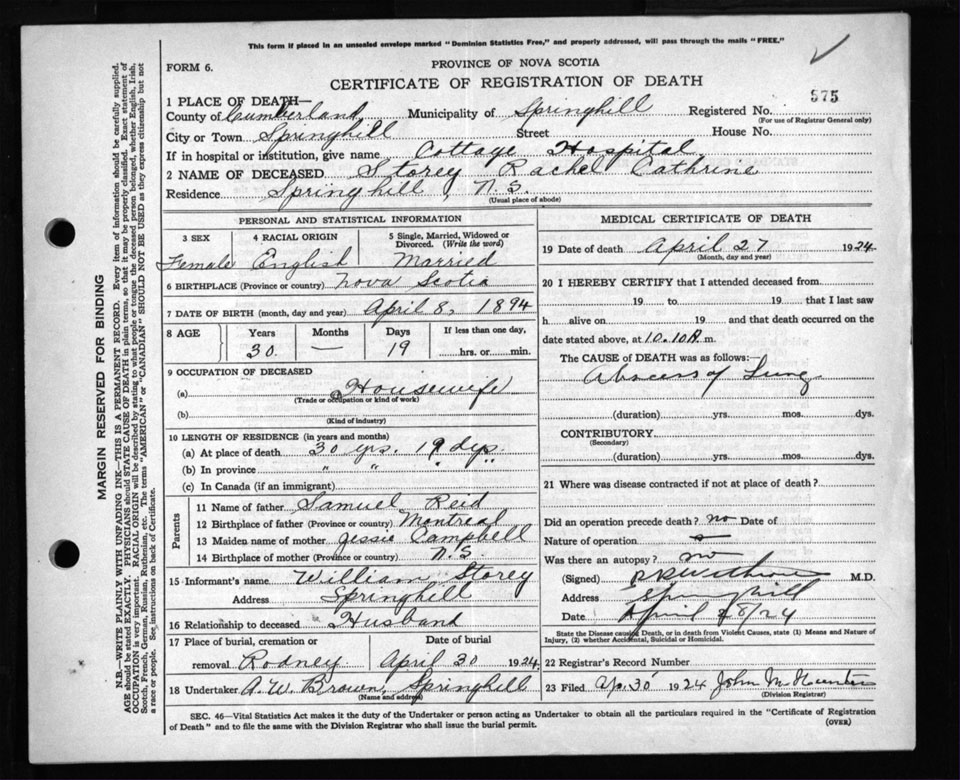 This form if placed in an unsealed envelope marked "Dominion Statistics Free," and properly addressed, will pass through the mails "FREE."
FORM 6.
PROVINCE OF NOVA SCOTIA
CERTIFICATE OF REGISTRATION OF DEATH
975
1 PLACE OF DEATH—
County of Cumberland Municipality of Springhill Registered No.
(For use of Registrar General only)
City or Town Springhill Street House No.
If in hospital or institution, give name Cottage Hospital
2 NAME OF DECEASED Storey Rachel Cathrine
Residence Springhill, N.S.
(Usual place of abode)
PERSONAL AND STATISTICAL INFORMATION
3 SEX 4 RACIAL ORIGIN 5 Single, Married, Widowed or Divorced. (Write the word)
Female English Married
6 BIRTHPLACE (Province or country) Nova Scotia
7 DATE OF BIRTH (month, day and year) April 8, 1894
8 AGE Years Months Days If less than one day,
30 — 19 hrs. or min.
9 OCCUPATION OF DECEASED
(a) Housewife
(Trade or occupation or kind of work)
(b)
(Kind of industry)
10 LENGTH OF RESIDENCE (in years and months)
(a) At place of death 30 yrs. 19 dys.
(b) In province " " " "
(c) In Canada (if an immigrant)
Parents
11 Name of father Samuel Reid
12 Birthplace of father (Province or country) Montreal
13 Maiden name of mother Jessie Campbell
14 Birthplace of mother (Province or country) N.S.
15 Informant's name William Storey
Address Springhill
16 Relationship to deceased Husband
17 Place of burial, cremation or Date of burial
removal Rodney April 30 1924
18 Undertaker A. W. Brown, Springhill
(Name and address)
MEDICAL CERTIFICATE OF DEATH
19 Date of death April 27 1924
(Month, day and year)
20 I HEREBY CERTIFY that I attended deceased from
19 to 19 that I last saw
h alive on 19 and that death occurred on
date stated above, at 10.10A m.
The CAUSE of DEATH was as follows:—
Abscess of Lung
(duration) yrs. mos. dys.
CONTRIBUTORY
(Secondary)
(duration) yrs. mos. dys.
21 Where was disease contracted if not at place of death?
Did an operation precede death? no Date of
Nature of operation
Was there an autopsy? no
(Signed) M.D.
Address Springhill
Date April 28/24
State the Disease causing Death, or in death from Violent Causes, state (1) Means and Nature of
Injury, (2) whether Accidental, Suicidal or Homicidal.
22 Registrar's Record Number
23 Filed Ap. 30 1924 John M Hunter
(Division Registrar)
SEC. 46—Vital Statistics Act makes it the duty of the Undertaker or person acting as Undertaker to obtain all the particulars required in the "Certificate of Registration
of Death" and to file the same with the Division Registrar who shall issue the burial permit.
(OVER)
MARGIN RESERVED FOR BINDING
N.B.—WRITE PLAINLY WITH UNFADING INK—THIS IS A PERMANENT RECORD. Every item of information should be carefully supplied.
AGE should be stated EXACTLY. PHYSICIANS should STATE CAUSE OF DEATH in plain terms, so that it may be properly classified. Exact statement of
OCCUPATION is very important. RACIAL ORIGIN will be described by stating to what people or tongue the deceased person belonged, whether English, Irish,
Scotch, French, German, Russian, Ruthenian, etc. The terms "AMERICAN" or "CANADIAN" SHOULD NOT BE USED as they express citizenship but not
a race or people. See instructions on back of Certificate.